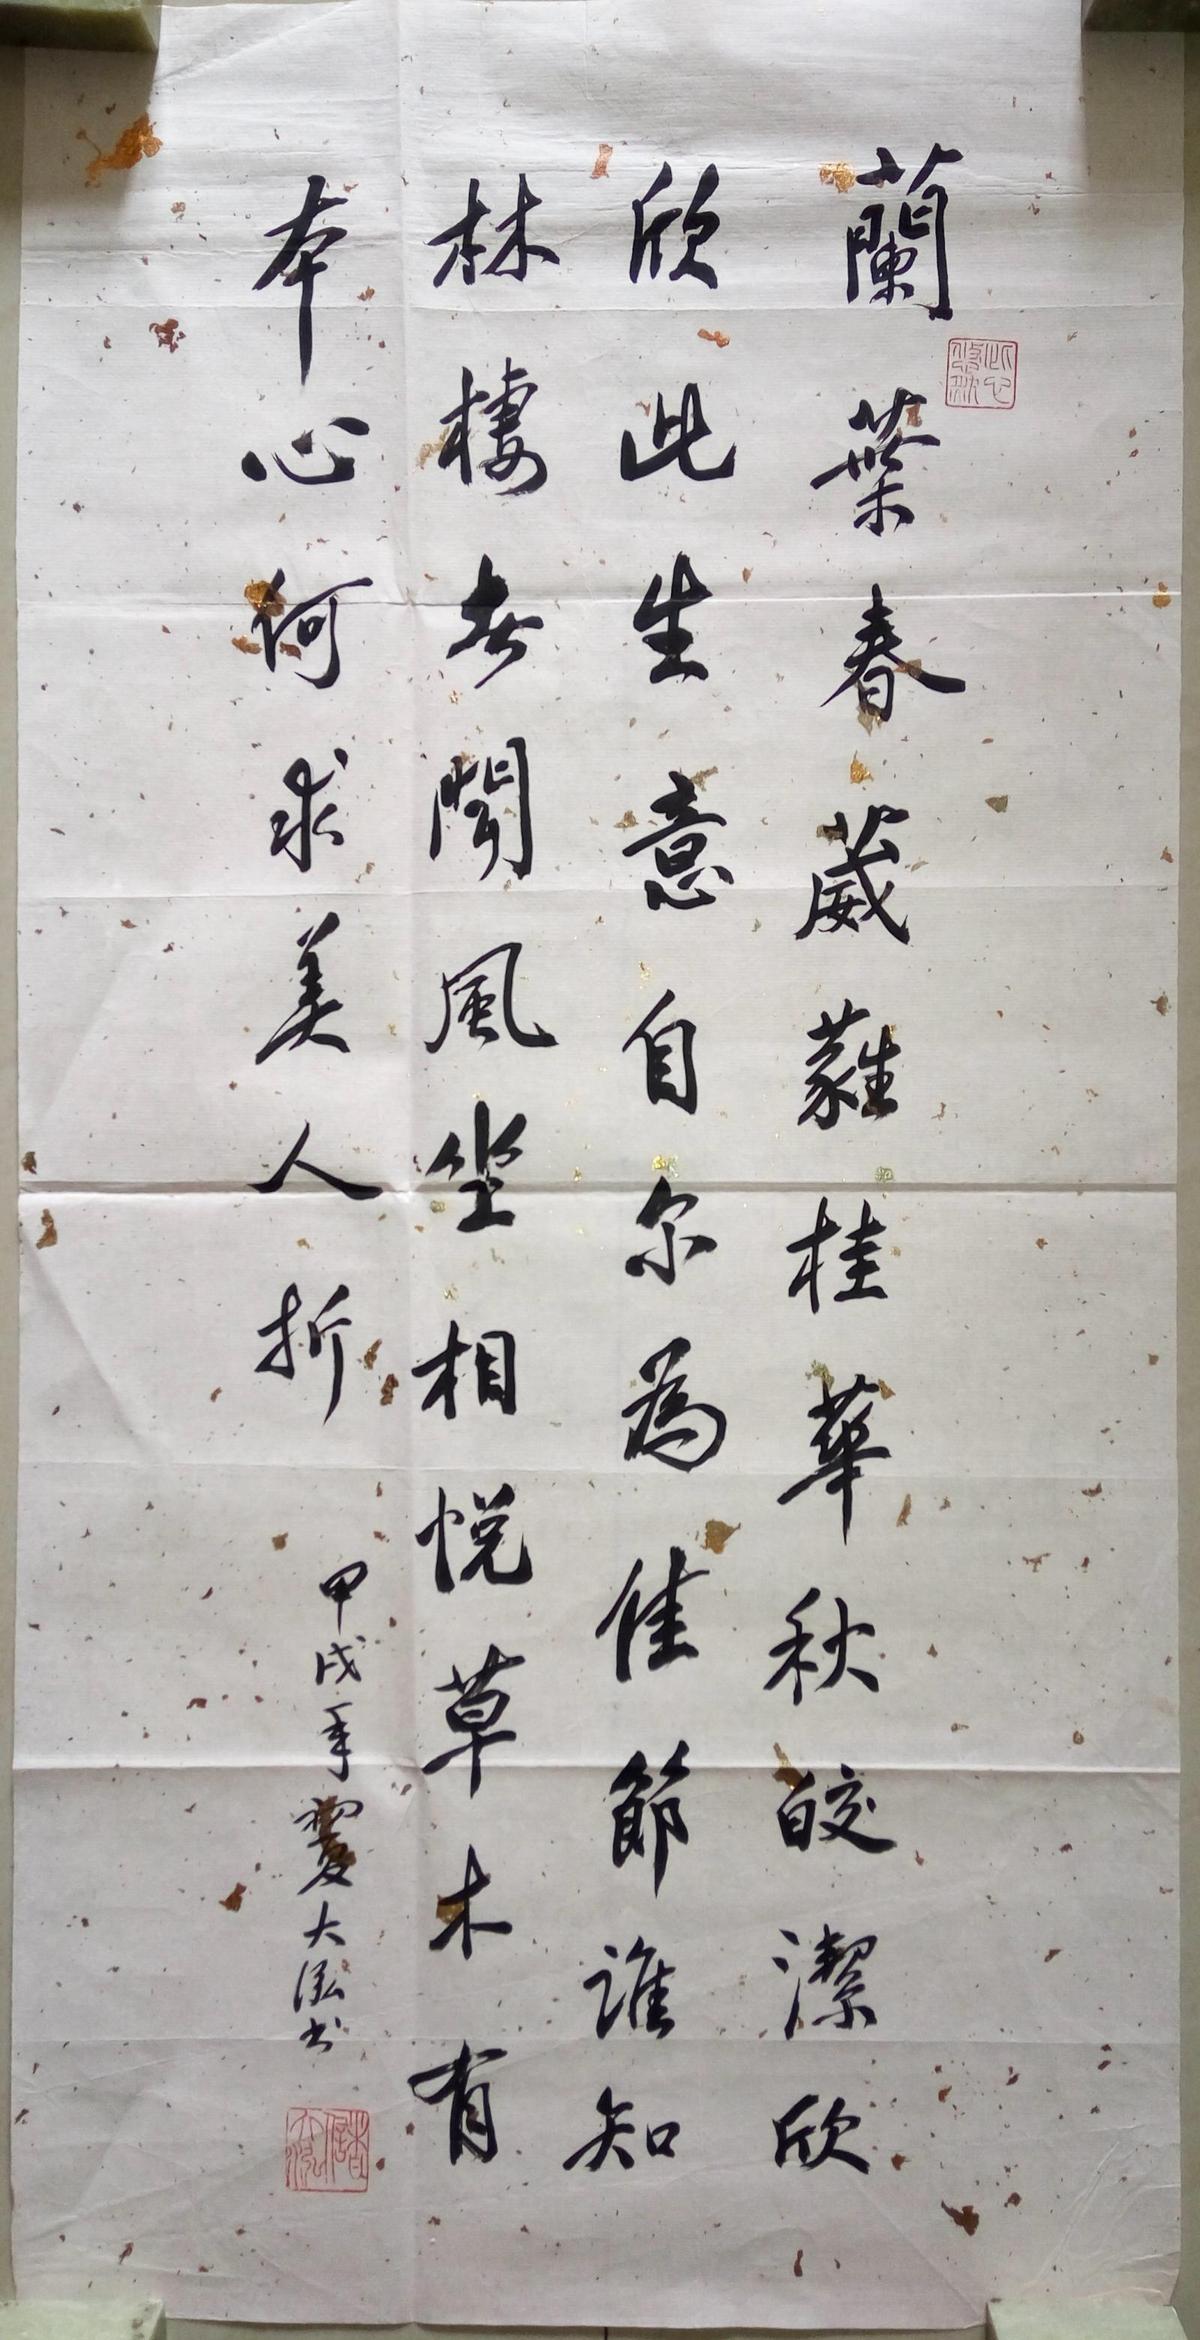 蘭葉春葳蕤桂華秋皎潔欣
欣此生意自尔為佳節誰知
林棲者聞風坐相悦草木有
本心何求美人折
甲戌年夏大泓书